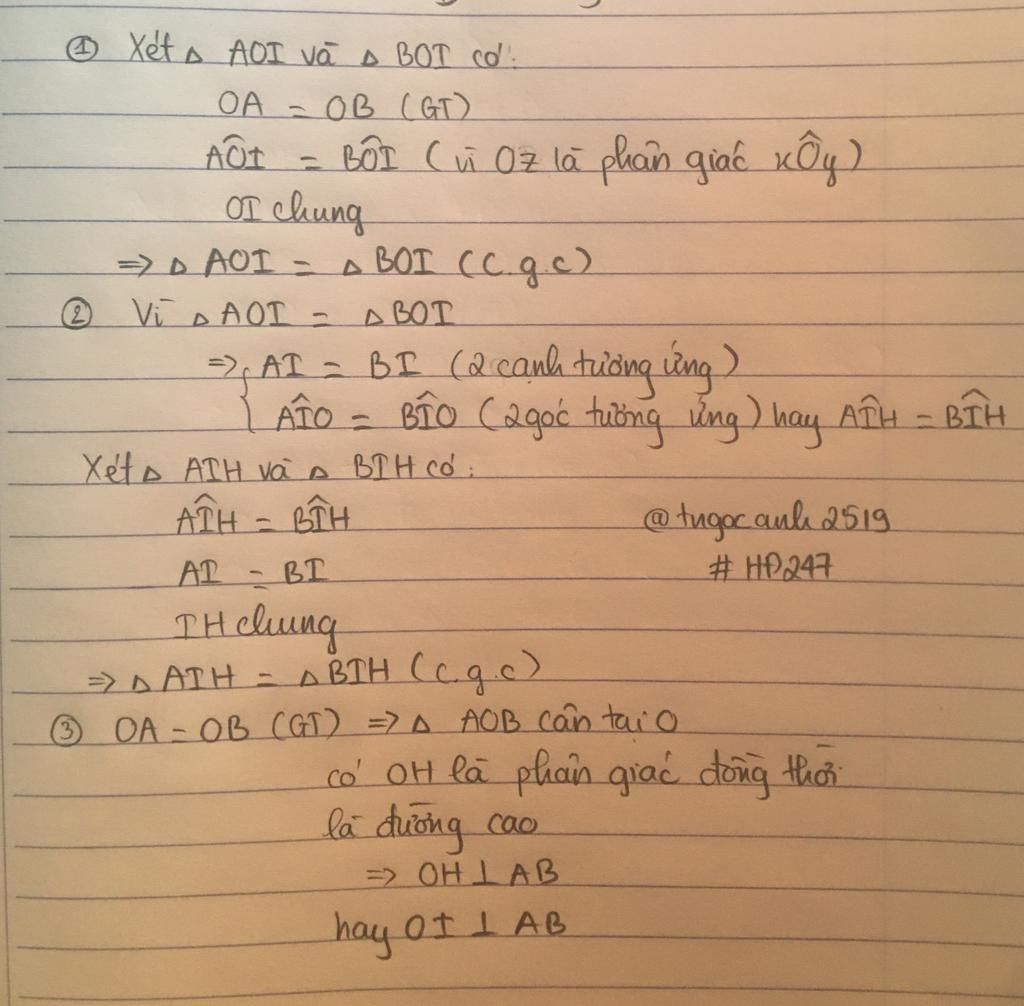 ① Xét △ AOI và △ BOI có:
OA = OB (GT)
AÔI = BÔI (vì Oz là phân giác xÔy)
OI chung
=> △ AOI = △ BOI (c.g.c)
② Vì △ AOI = △ BOI
=> { AI = BI (2 cạnh tương ứng)
AÎO = BÎO (2 góc tương ứng) hay AÎH = BÎH
Xét △ AIH và △ BIH có:
AÎH = BÎH
@tngocanh2519
AI = BI
# HĐ247
IH chung
=> △ AIH = △ BIH (c.g.c)
③ OA = OB (GT) => △ AOB cân tại O
có OH là phân giác đồng thời
là đường cao
=> OH ⊥ AB
hay OI ⊥ AB